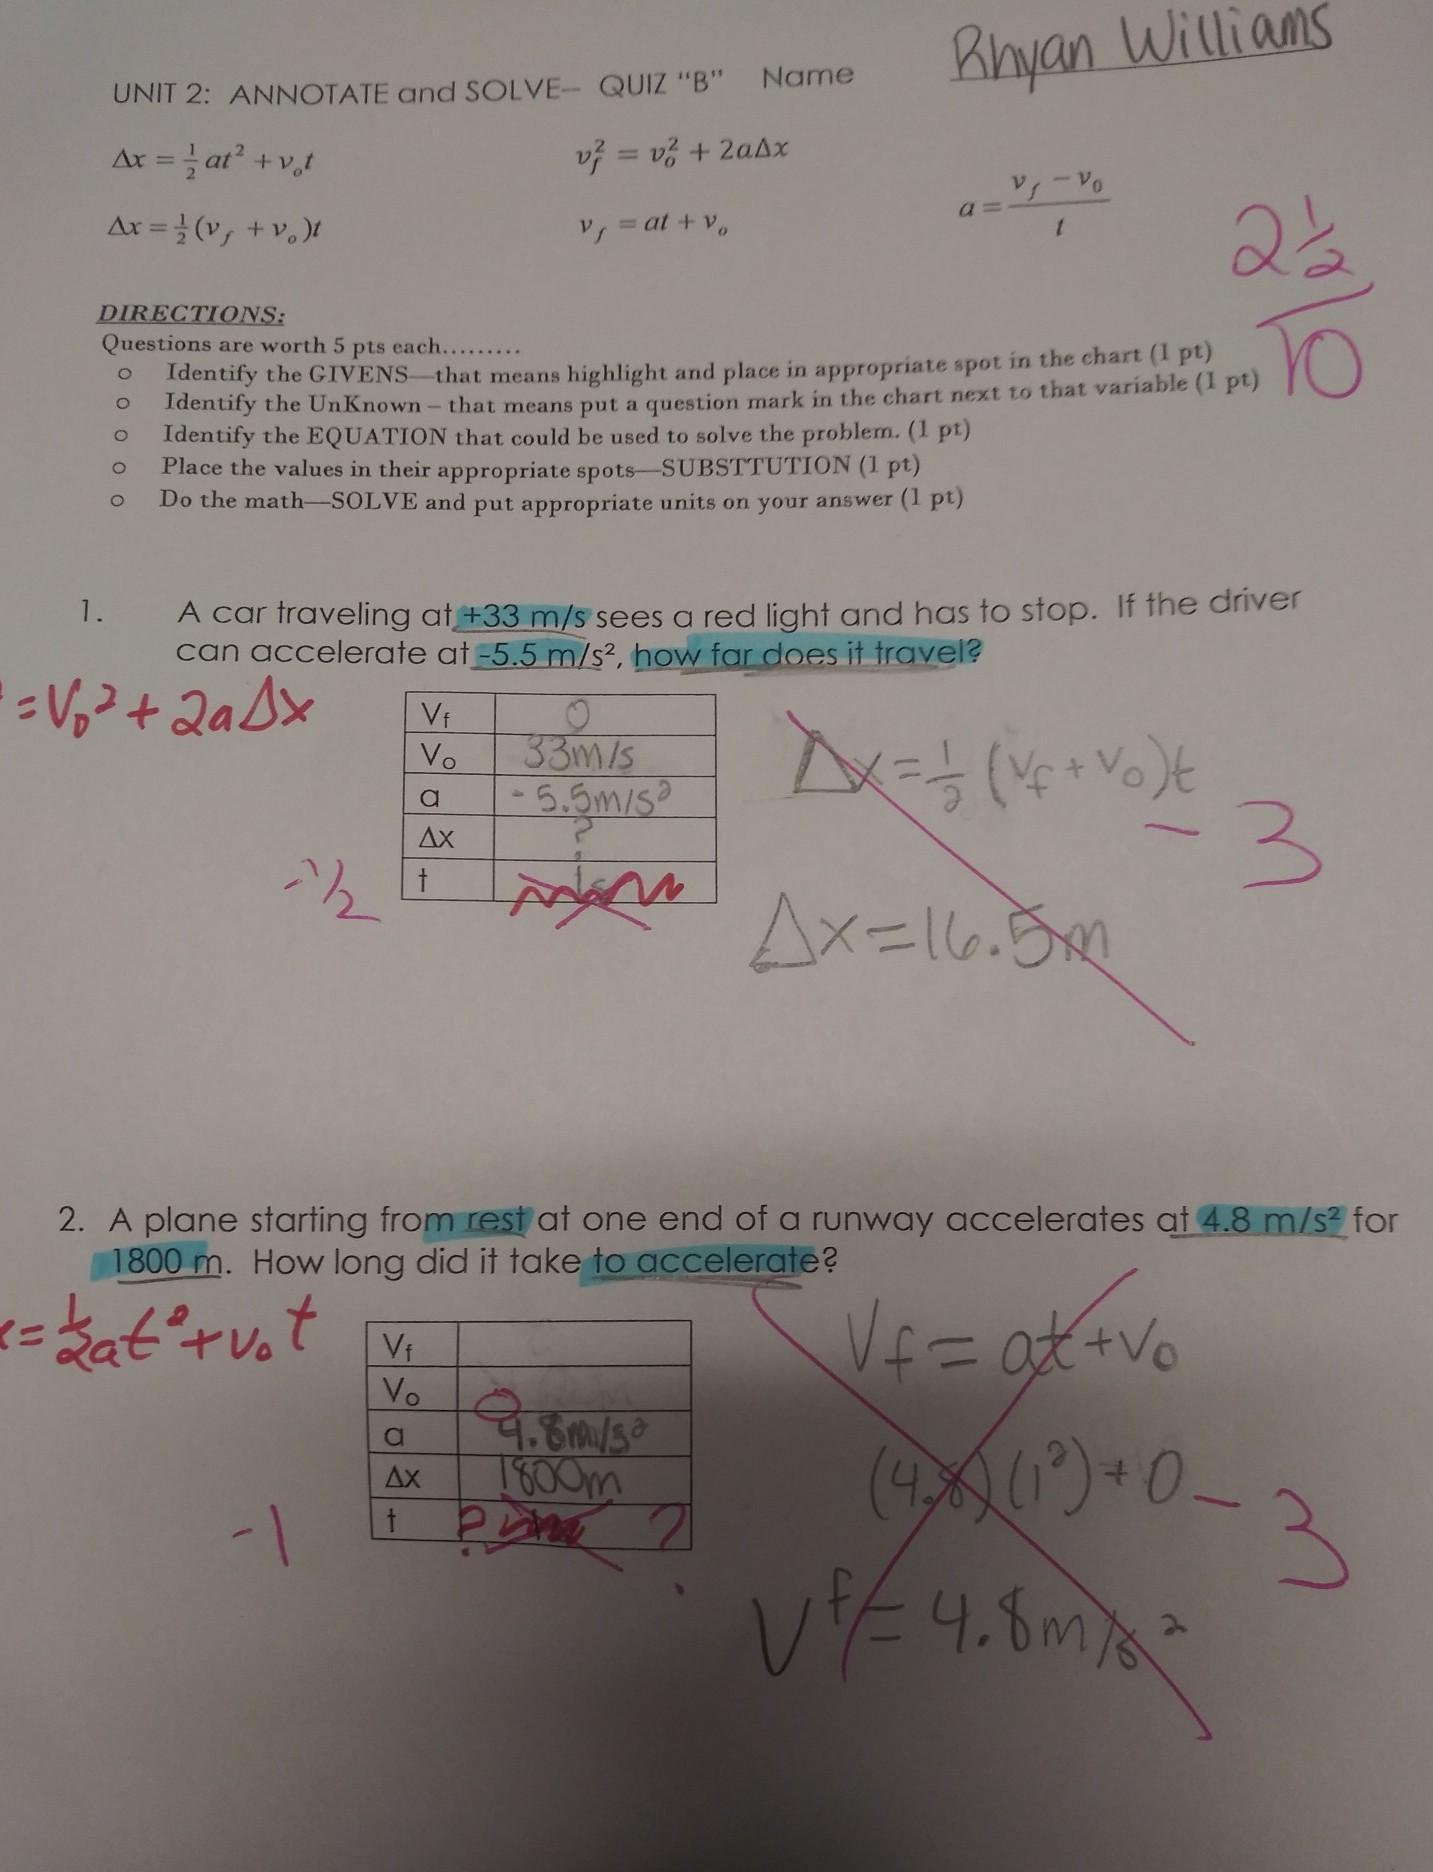 Rhyan Williams
UNIT 2: ANNOTATE and SOLVE– QUIZ "B" Name
Δx = ½ at² + v₀t
v_f² = v₀² + 2aΔx
a = (v_f − v₀)/t
Δx = ½(v_f + v₀)t
v_f = at + v₀
2½/10
DIRECTIONS:
Questions are worth 5 pts each.........
o Identify the GIVENS—that means highlight and place in appropriate spot in the chart (1 pt)
o Identify the UnKnown – that means put a question mark in the chart next to that variable (1 pt)
o Identify the EQUATION that could be used to solve the problem. (1 pt)
o Place the values in their appropriate spots—SUBSTTUTION (1 pt)
o Do the math—SOLVE and put appropriate units on your answer (1 pt)
1. A car traveling at +33 m/s sees a red light and has to stop. If the driver
can accelerate at -5.5 m/s², how far does it travel?
= V₀² + 2aΔx
Vf 0
Vo 33m/s
a -5.5m/s²
Δx ?
t
-½
Δx = ½ (Vf + V₀)t
-3
Δx = 16.5m
2. A plane starting from rest at one end of a runway accelerates at 4.8 m/s² for
1800 m. How long did it take to accelerate?
= ½at² + v₀t
Vf
Vo 0
a 4.8m/s²
Δx 1800m
t ? ?
-1
Vf = at + V₀
(4.8)(1²) + 0
-3
Vf = 4.8m/s²